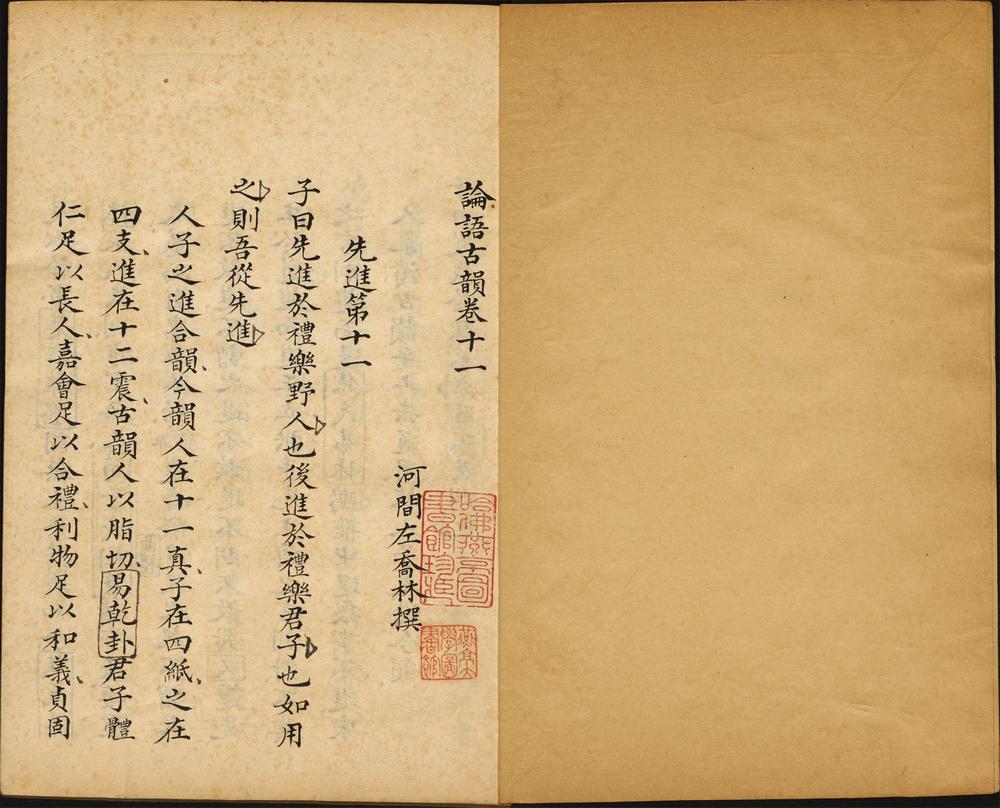 論語古韻卷十一
河間左喬林撰
先進第十一
子曰先進於禮樂野人也後進於禮樂君子也如用
之則吾從先進
人子之進合韻今韻人在十一真子在四紙之在
四支進在十二震古韻人以脂切易乾卦君子體
仁足以長人嘉會足以合禮利物足以和義貞固
哈佛燕京圖
書館珍藏